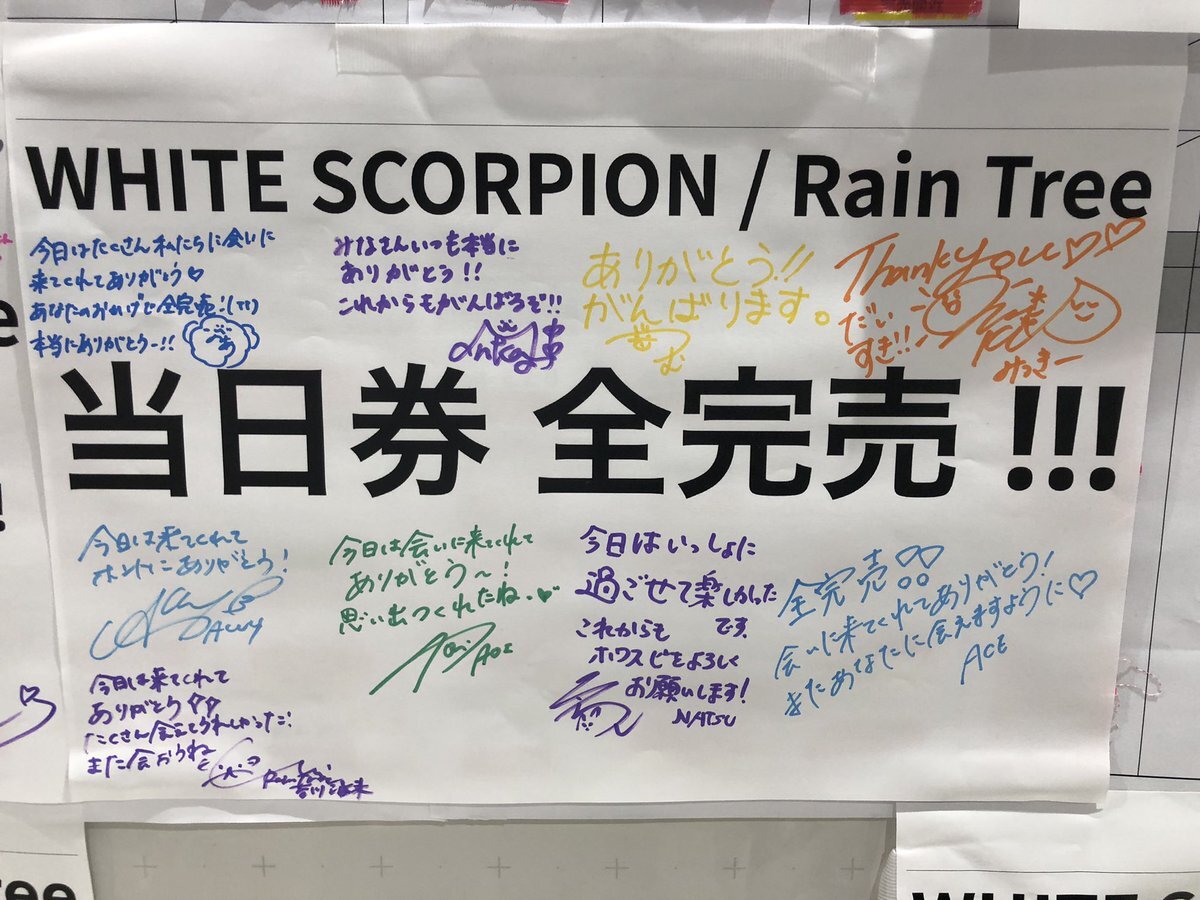 WHITE SCORPION / Rain Tree
今日はたくさん私たちに会いに
来てくれてありがとう♡
あなたのおかげで全完売!(TT)
本当にありがとうー!!
みなさんいつも本当に
ありがとう!!
これからもがんばるぞ!!
ありがとう!!
がんばります。
む
Thank you♡♡
だい
すき!!
みっきー
当日券 全完売 !!!
今日は来てくれて
ホントにありがとう!
ALLY
今日は会いに来てくれて
ありがとう〜!
思い出つくれたね.♥
AOI
今日はいっしょに
過ごせて楽しかった
です
これからも
ホワスピをよろしく
お願いします!
NATSU
全完売
会いに来てくれてありがとう!
またあなたに会えますように♡
ACE
今日は来てくれて
ありがとう
たくさん会えてうれしかった!
また会おうね
ree
WHITE